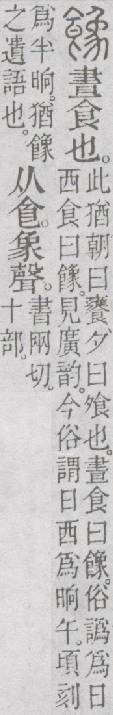 𩞧晝食也。
此猶朝曰饔夕曰飱也。晝食曰𩞧。俗譌爲日
西食曰𩞧。見廣韵。今俗謂日西爲晌午。頃刻
爲半晌。猶𩞧
之遺語也。
从食象聲。
書兩切。
十部。